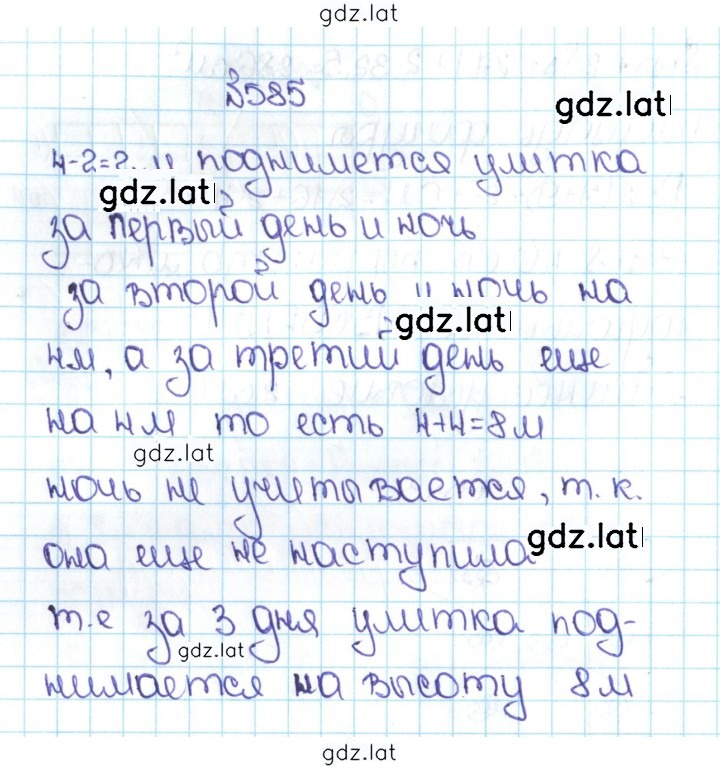 gdz.lat
№585
gdz.lat
4-2=2 поднимется улитка
gdz.lat
за первый день и ночь
за второй день и ночь на
gdz.lat
4м, а за третий день еще
на 4м то есть 4+4=8м
gdz.lat
ночь не учитывается, т.к.
она еще не наступила
gdz.lat
т.е за 3 дня улитка под-
gdz.lat
нимается на высоту 8м
gdz.lat